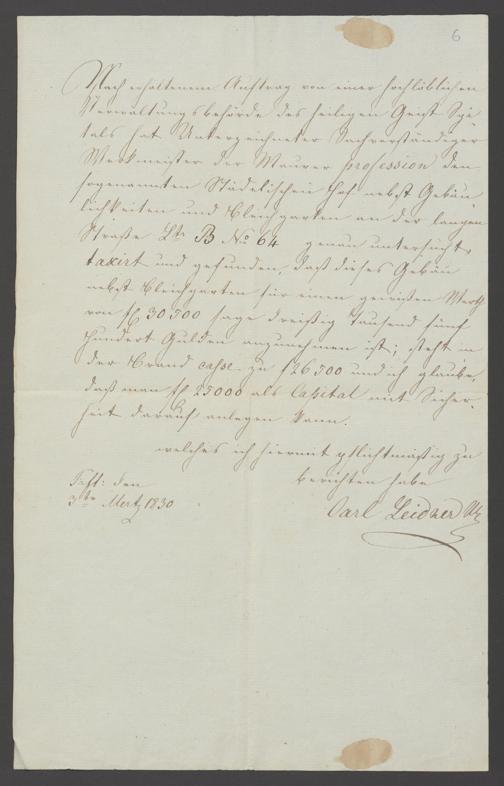 6
Nach erhaltenem Auftrag von einer hochlöblichen
Verwaltungsbehörde des heiligen Geist Spi
tals hat Unterzeichneter Sachverständiger
Werkmeister der Maurer profession den
sogenannten Städelischen Hof nebst Gebäu
lichkeiten und Bleichgarten an der langen
Straße Ltr B No 64 genau untersucht,
taxirt und gefunden, daß dieses Gebäu
nebst Bleichgarten für einen gewißen Werth
von f 30500 sage dreißig tausend fünf
hundert Gulden anzunehmen ist; steht in
der Brand casse zu f 26500 und ich glaube,
daß man f 25000 als Capital mit Sicher-
heit darauf anlegen kann.
welches ich hiermit pflichtmäßig zu
berichten habe
Fft: den
3ten Mertz 1830
Carl Leidner